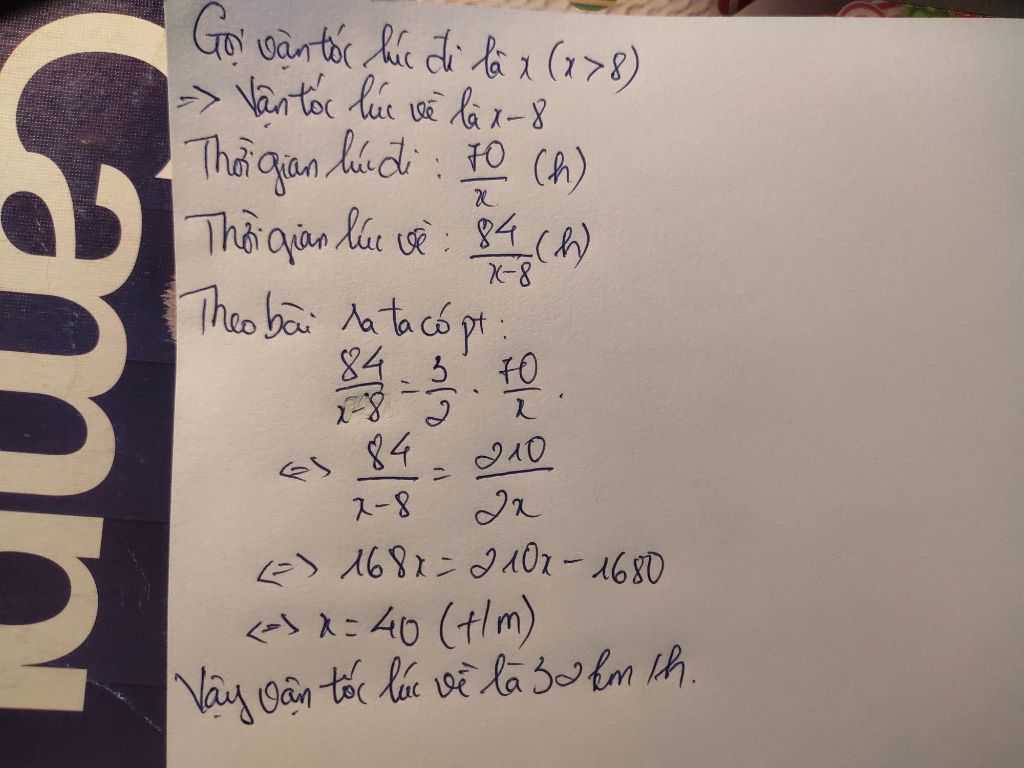 Gọi vận tốc lúc đi là x (x>8)
=> Vận tốc lúc về là x-8
Thời gian lúc đi : 70/x (h)
Thời gian lúc về : 84/(x-8) (h)
Theo bài ra ta có pt :
84/(x-8) = 3/2 . 70/x .
<=> 84/(x-8) = 210/2x
<=> 168x = 210x - 1680
<=> x = 40 (t/m)
Vậy vận tốc lúc về là 32 km/h.
Camp